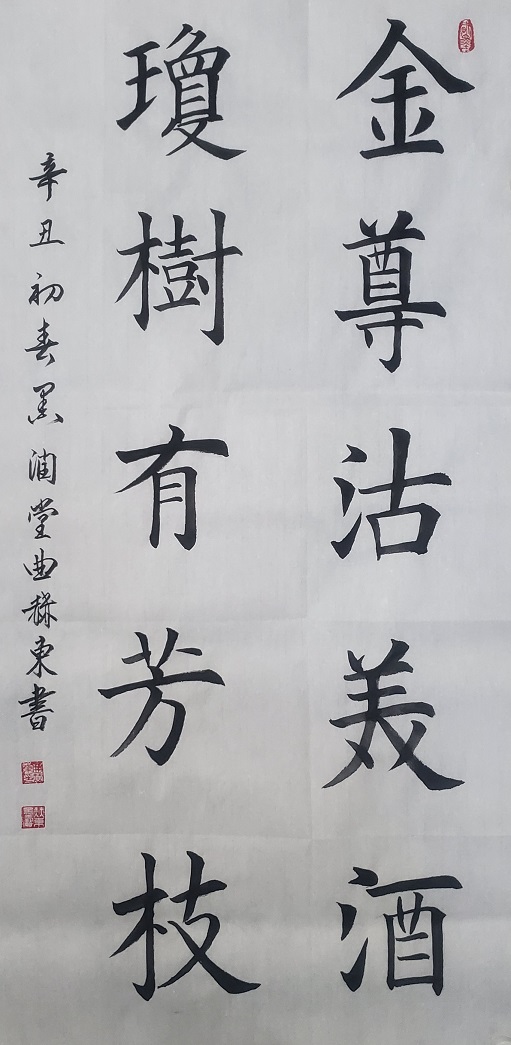 金尊沽美酒
瓊樹有芳枝
辛丑初春墨润堂曲赫東書